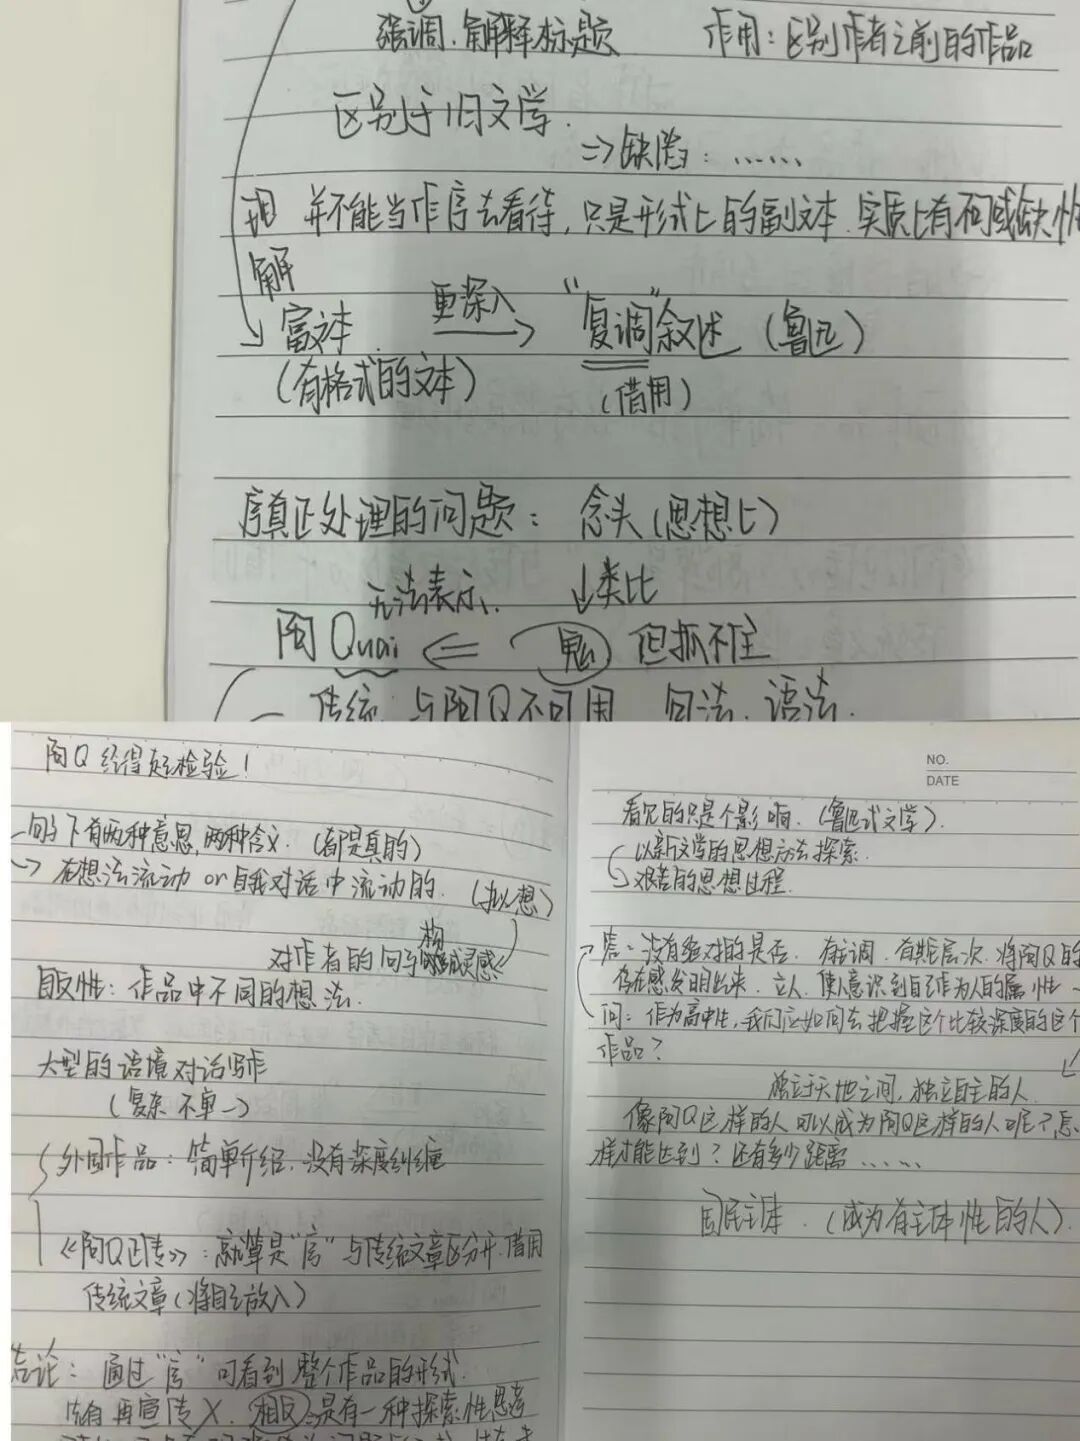 强调.解释标题 作用：区别作者之前的作品
区别于旧文学.
⇒缺陷：……
理 并不能当作序去看待,只是形式上的副文本.实质上有不可或缺性
解
富文本 更深入 → “复调”叙述（鲁迅）
（有格式的文本） （借用）
序真正处理的问题： 念头（思想上）
无法表示. ↓类比
阿Quai ⇐ 鬼 但抓不住
传统 与阿Q不可用 句法.语法.
阿Q 经得起检验！
句子下有两种意思,两种含义.（都是真的）
→ 在想法流动 or 自我对话中流动的.（拟想）
对作者的句子构成灵感
自反性：作品中不同的想法.
大型的语境对话写作
（复杂 不单一）
外国作品：简单介绍.没有深度纠缠
《阿Q正传》：就算是“序”与传统文章区分开.借用
传统文章（将自己放入）
结论：通过“序”可看到 整个作品的形式.
没有再宣传×.相反.是有一种探索性思考
NO.
DATE
看见的只是个影响.（鲁迅式文学）.
以新文学的思想方法探索.
艰苦的思想过程.
答：没有绝对的是否. 有主调.有其层次.将阿Q的
存在感发明出来. 立人.使人意识到自己作为人的属性
问：作为高中生,我们应如何去把握这个比较深度的这个
作品？
独立于天地之间,独立自主的人.
像阿Q这样的人可以成为阿Q这样的人呢？怎
样才能达到？还有多少距离……
国民主体.（成为有主体性的人）.